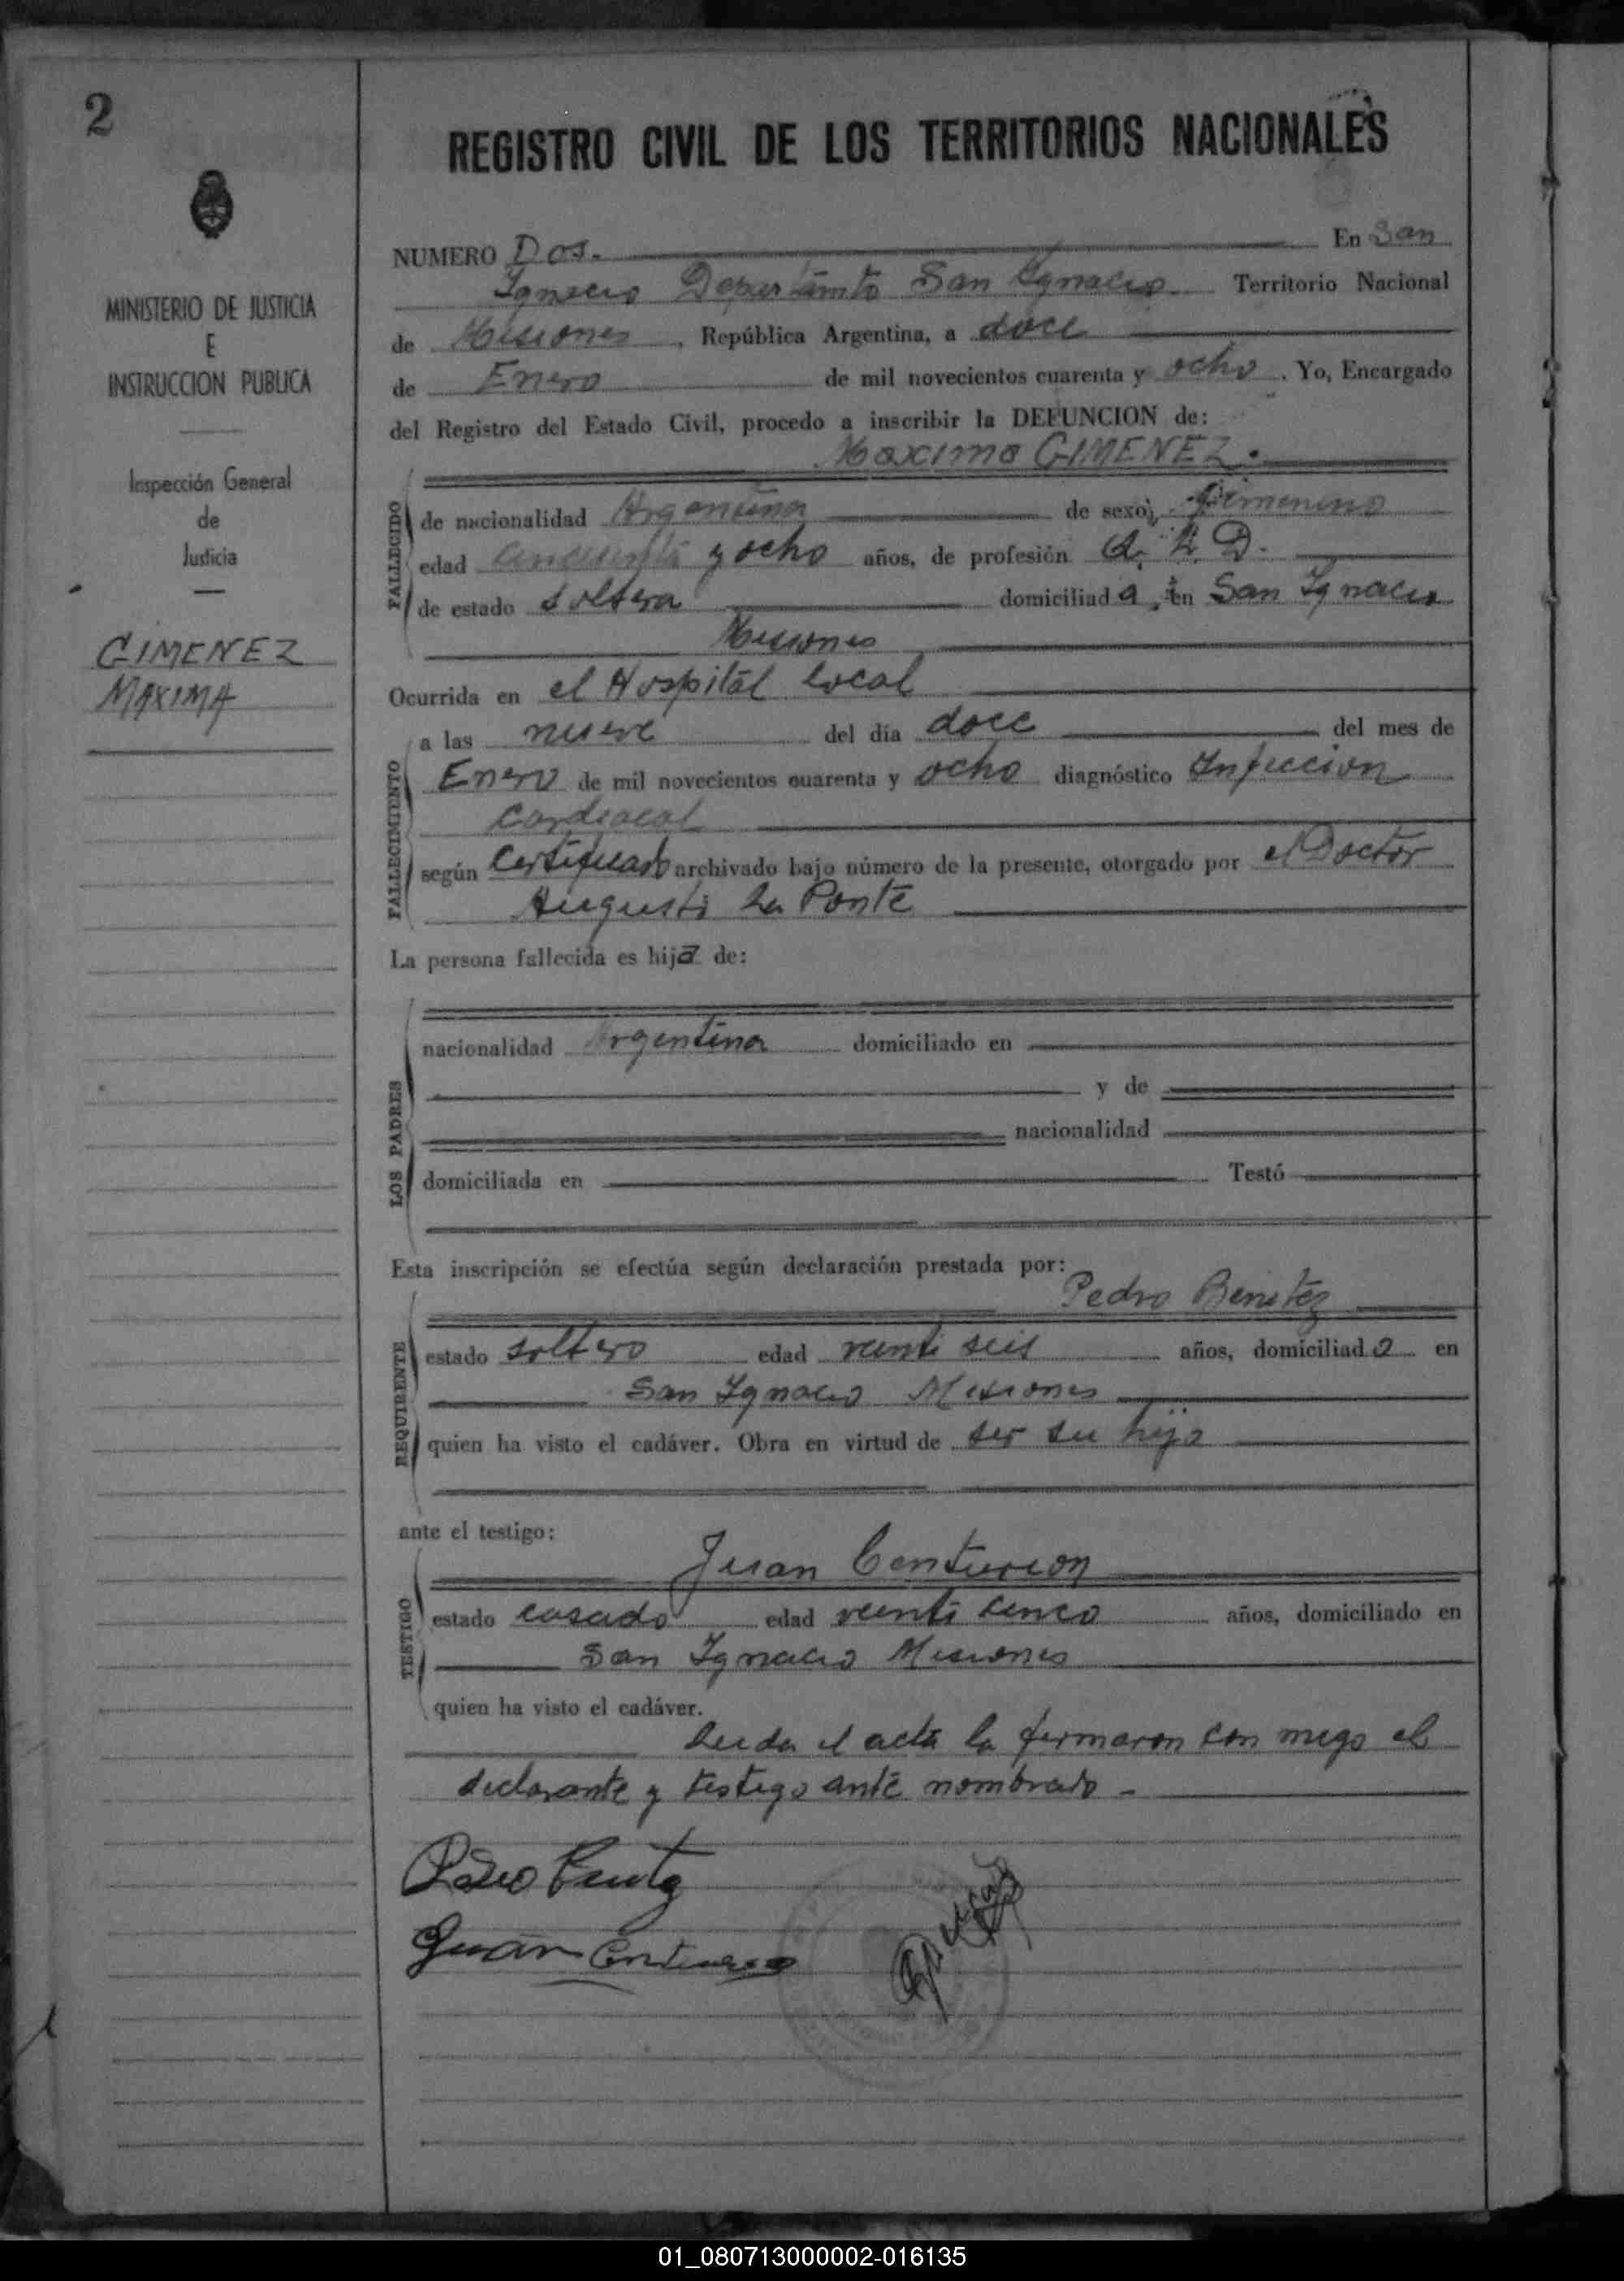 2
MINISTERIO DE JUSTICIA
E
INSTRUCCION PUBLICA
Inspección General
de
Justicia
GIMENEZ
MAXIMA
REGISTRO CIVIL DE LOS TERRITORIOS NACIONALES
NUMERO Dos. En San
Ignacio Departamto San Ignacio Territorio Nacional
de Misiones, República Argentina, a doce
de Enero de mil novecientos cuarenta y ocho. Yo, Encargado
del Registro del Estado Civil, procedo a inscribir la DEFUNCION de:
Maxima GIMENEZ.
FALLECIDO
de nacionalidad Argentina de sexo Femenino
edad cincuenta y ocho años, de profesión Q. H. D.
de estado soltera domiciliada, en San Ignacio
Misiones
Ocurrida en el Hospital local
FALLECIMIENTO
a las nueve del día doce del mes de
Enero de mil novecientos cuarenta y ocho diagnóstico Infeccion
cardiacal
según Certificado archivado bajo número de la presente, otorgado por el Doctor
Augusto La Ponte
La persona fallecida es hija de:
LOS PADRES
nacionalidad Argentina domiciliado en
y de
nacionalidad
domiciliada en Testó
Esta inscripción se efectúa según declaración prestada por:
Pedro Benitez
REQUIRENTE
estado soltero edad veinti seis años, domiciliado en
San Ignacio Misiones
quien ha visto el cadáver. Obra en virtud de ser su hijo
ante el testigo:
Juan Centurion
TESTIGO
estado casado edad veinti cinco años, domiciliado en
San Ignacio Misiones
quien ha visto el cadáver.
Leida el acta la firmaron con migo el
declarante y testigo ante nombrado -
Pedro Benitez
Juan Centurion
01_080713000002-016135